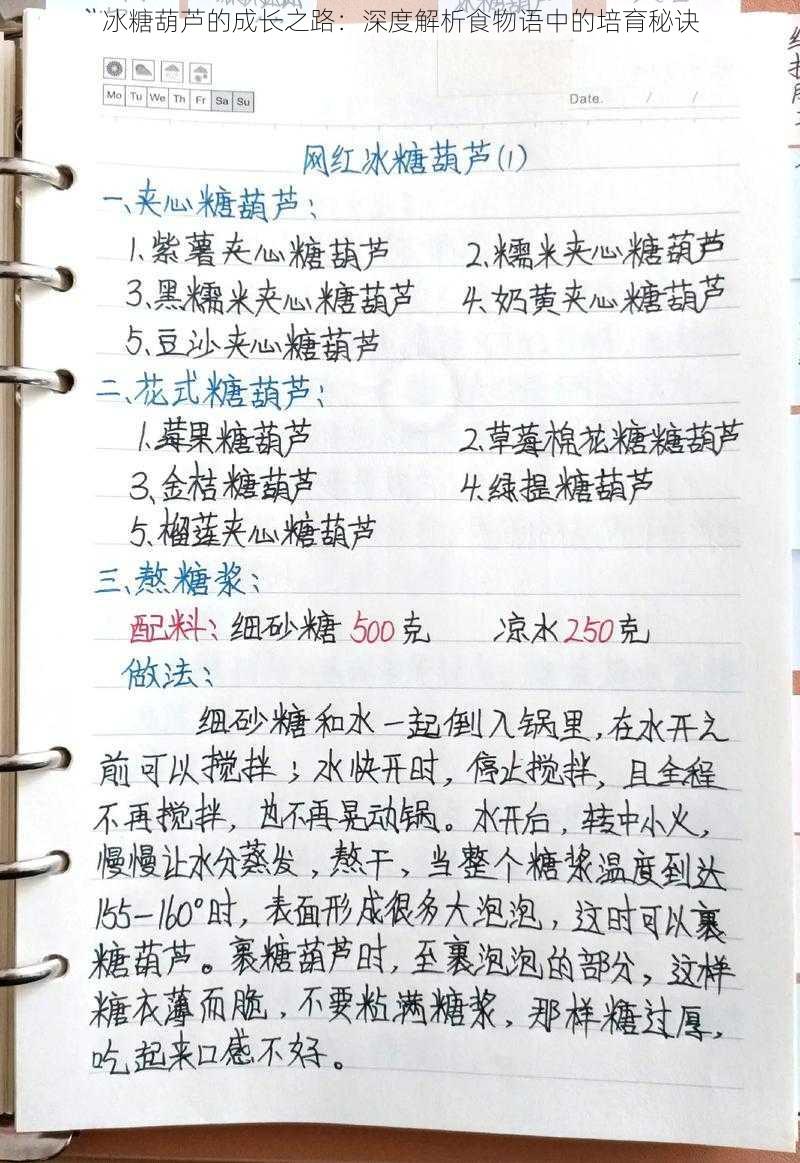 冰糖葫芦的成长之路：深度解析食物语中的培育秘诀
Mo Tu We Th Fr Sa Su
Date. / /
网红冰糖葫芦(1)
一、夹心糖葫芦：
1.紫薯夹心糖葫芦 2.糯米夹心糖葫芦
3.黑糯米夹心糖葫芦 4.奶黄夹心糖葫芦
5.豆沙夹心糖葫芦
二、花式糖葫芦：
1.莓果糖葫芦 2.草莓棉花糖糖葫芦
3.金桔糖葫芦 4.绿提糖葫芦
5.榴莲夹心糖葫芦
三、熬糖浆：
配料：细砂糖500克 凉水250克
做法：
细砂糖和水一起倒入锅里，在水开之
前可以搅拌；水快开时，停止搅拌，且全程
不再搅拌，也不再晃动锅。水开后，转中小火，
慢慢让水分蒸发，熬干，当整个糖浆温度到达
155-160°时，表面形成很多大泡泡，这时可以裹
糖葫芦。裹糖葫芦时，至裹泡泡的部分，这样
糖衣薄而脆，不要粘满糖浆，那样糖过厚，
吃起来口感不好。